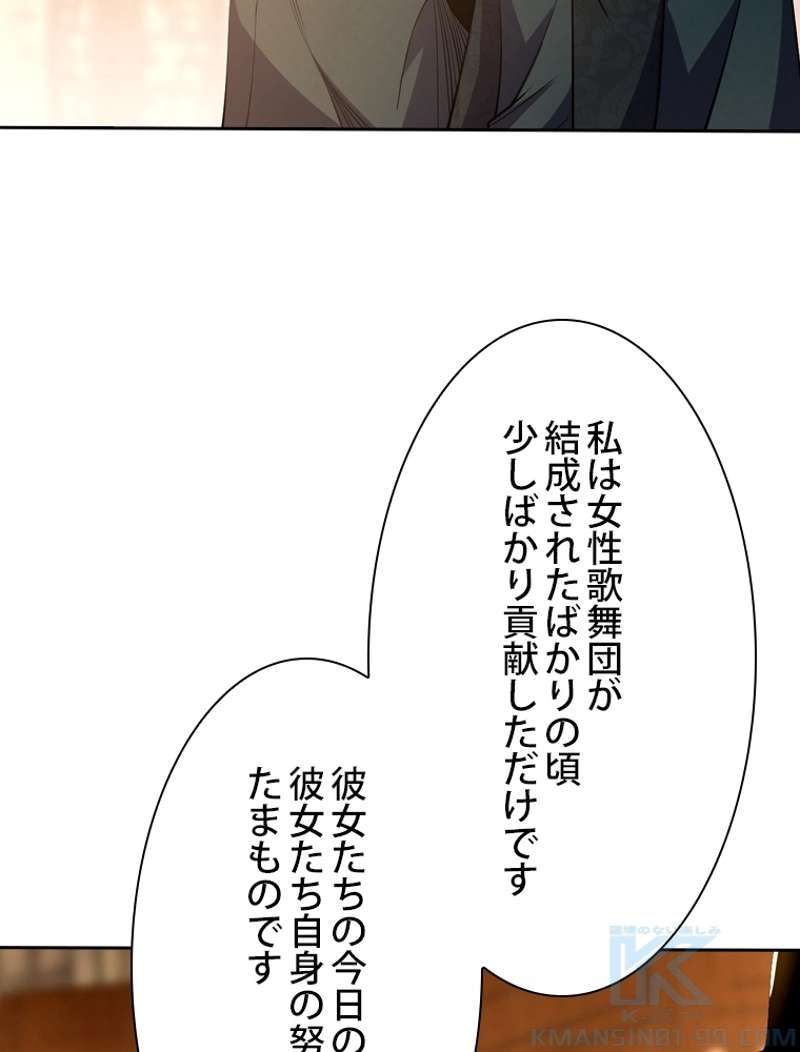 私は女性歌舞団が
結成されたばかりの頃
少しばかり貢献しただけです
彼女たちの今日の
彼女たち自身の努
たまものです
KMANSIN01-99.COM